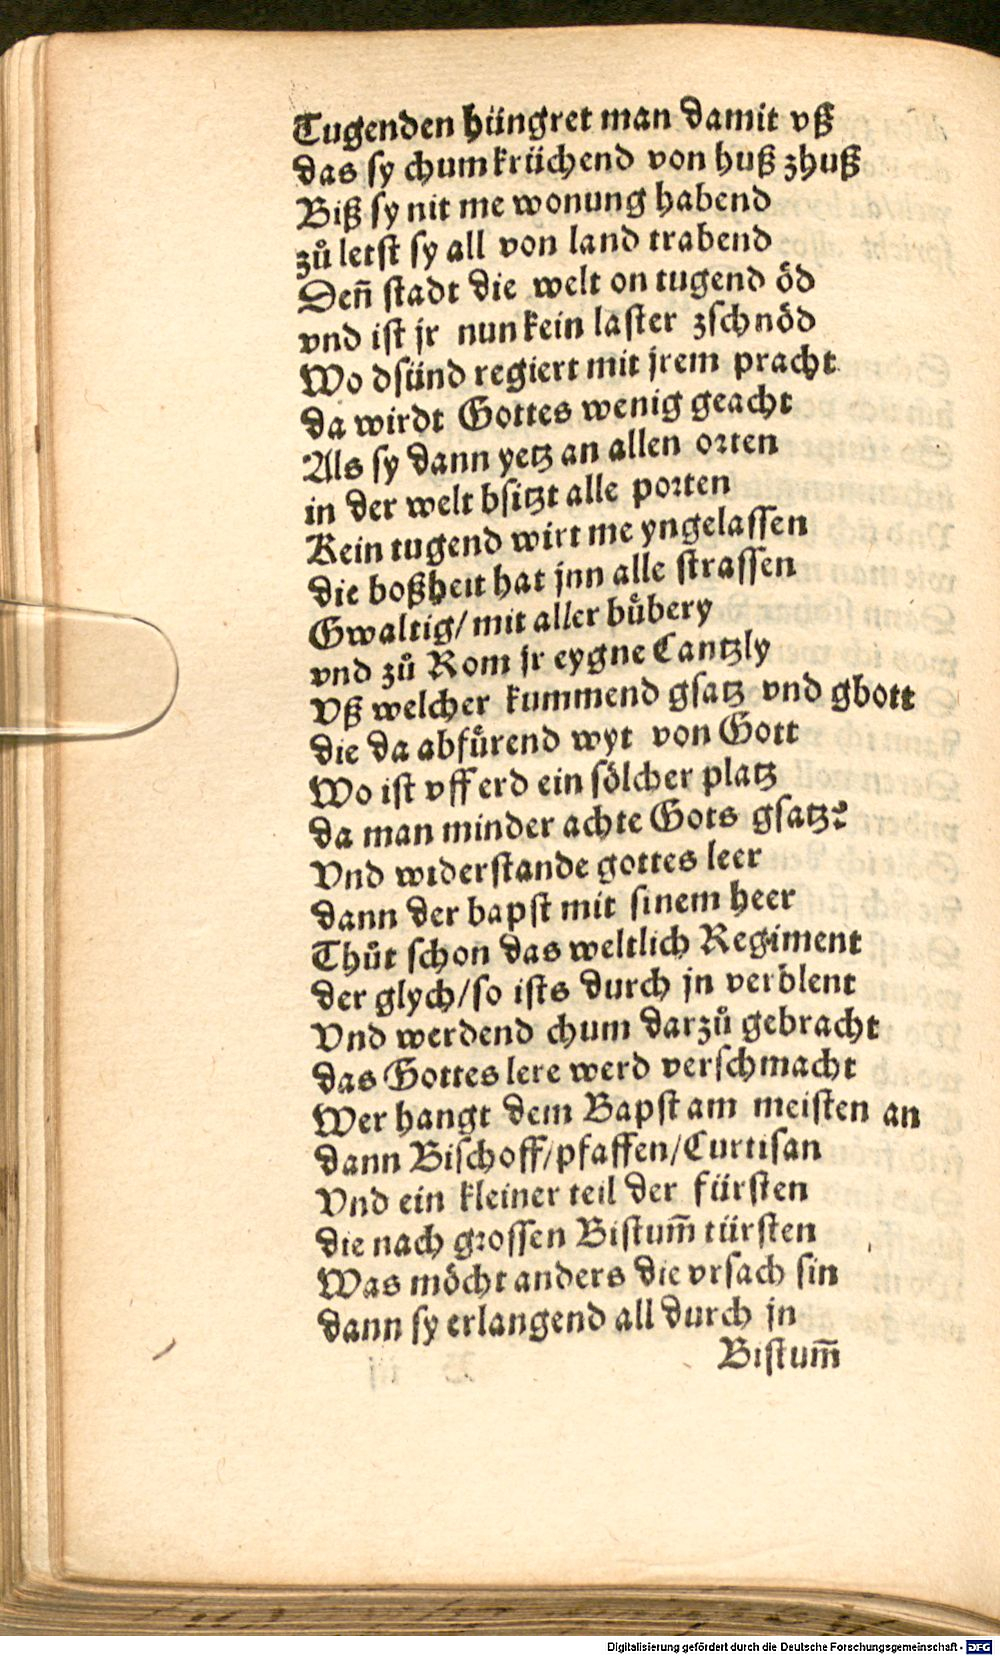 Tugenden hüngret man damit vß
das sy chum krüchend von huß zhuß
Biß sy nit me wonung habend
zů letst sy all von land trabend
Deñ stadt die welt on tugend öd
vnd ist jr nun kein laster zschnöd
Wo dsünd regiert mit jrem pracht
da wirdt Gottes wenig geacht
Als sy dann yetz an allen orten
in der welt bsitzt alle porten
Kein tugend wirt me yngelassen
die boßheit hat jnn alle strassen
Gwaltig/ mit aller bůbery
vnd zů Rom jr eygne Cantzly
Vß welcher kummend gsatz vnd gbott
die da abfůrend wyt von Gott
Wo ist vff erd ein sölcher platz
da man minder achte Gots gsatz?
Vnd widerstande gottes leer
dann der bapst mit sinem heer
Thůt schon das weltlich Regiment
der glych/so ists durch jn verblent
Vnd werdend chum darzů gebracht
das Gottes lere werd verschmacht
Wer hangt dem Bapst am meisten an
dann Bischoff/pfaffen/Curtisan
Vnd ein kleiner teil der fürsten
die nach grossen Bistum̃ türsten
Was möcht anders die vrsach sin
dann sy erlangend all durch jn
Bistum̃
Digitalisierung gefördert durch die Deutsche Forschungsgemeinschaft - DFG